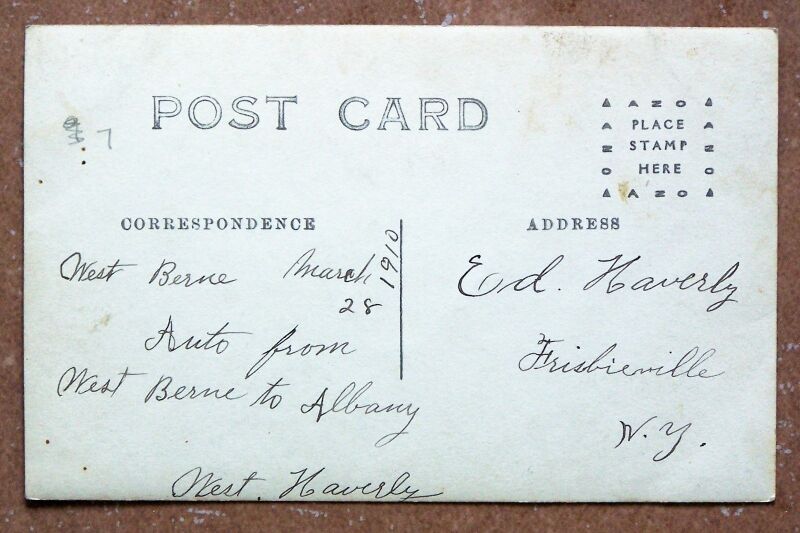 POST CARD
AZO
PLACE
STAMP
HERE
AZO
CORRESPONDENCE
West Berne March
28 1910
Auto from
West Berne to Albany
West. Haverly
ADDRESS
Ed. Haverly
Frisbieville
N.Y.